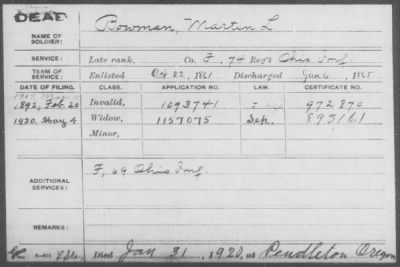 DEAD
NAME OF SOLDIER: Bowman, Martin L
SERVICE: Late rank, Co. F, 74 Reg't Ohio Inf
TERM OF SERVICE: Enlisted Oct 22, 1861 Discharged Jan 6, 1865
DATE OF FILING. CLASS. APPLICATION NO. LAW. CERTIFICATE NO.
1892, Feb. 20 Invalid, 1093741 972870
1920. May 4 Widow, 1157075 Sep. 893161
Minor,
ADDITIONAL SERVICES: F, 69 Ohio Inf
REMARKS:
Died Jan 31, 1920, at Pendleton Oregon